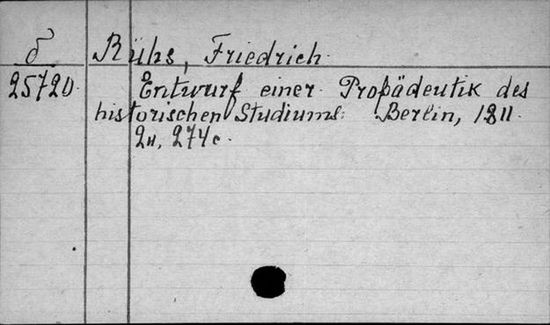 δ Rühs, Friedrich.
25720. Entwurf einer Propädeutik des
historischen Studiums. Berlin, 1811.
2н, 274с.